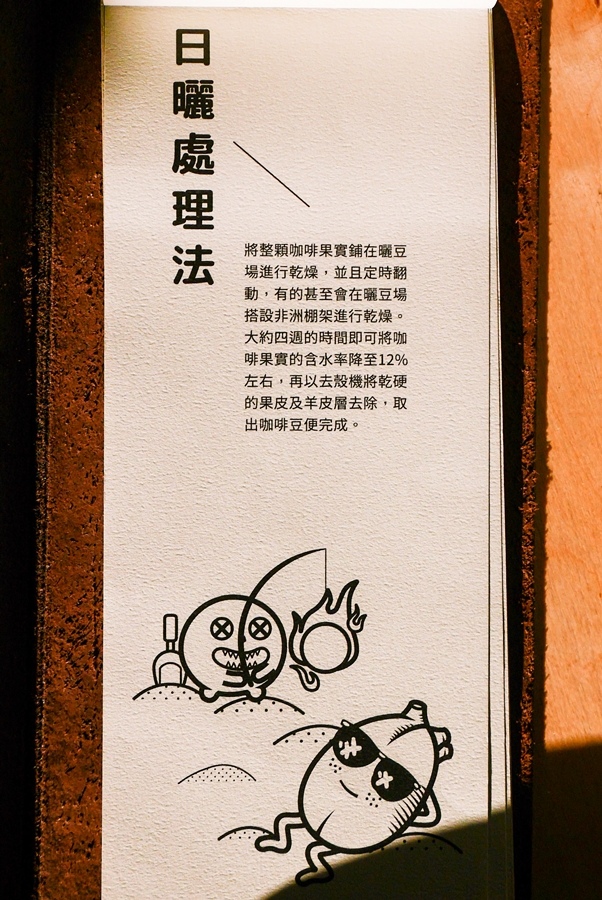 日曬處理法
將整顆咖啡果實鋪在曬豆
場進行乾燥，並且定時翻
動，有的甚至會在曬豆場
搭設非洲棚架進行乾燥。
大約四週的時間即可將咖
啡果實的含水率降至12%
左右，再以去殼機將乾硬
的果皮及羊皮層去除，取
出咖啡豆便完成。